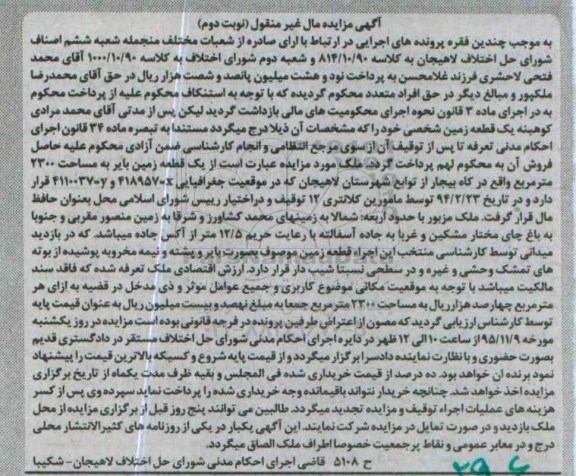 آگهی مزایده مال غیر منقول (نوبت دوم)
به موجب چندین فقره پرونده های اجرایی در ارتباط با ارای صادره از شعبات مختلف منجمله شعبه ششم اصناف
شورای حل اختلاف لاهیجان به کلاسه ۸۱۴/۱۰/۹۰ و شعبه دوم شورای اختلاف به کلاسه ۱۰۰۰/۱۰/۹۰ آقای محمد
فتحی لاحشری فرزند غلامحسن به پرداخت نود و هشت میلیون پانصد و شصت هزار ریال در حق آقای محمدرضا
ملکپور و مبالغ دیگر در حق افراد متعدد محکوم گردیده که با توجه به استنکاف محکوم علیه از پرداخت محکوم
به در اجرای ماده ۳ قانون نحوه اجرای محکومیت های مالی بازداشت گردید لیکن پس از مدتی آقای محمد مرادی
کوهبنه یک قطعه زمین شخصی خود را که مشخصات آن ذیلا درج میگردد مستندا به تبصره ماده ۳۴ قانون اجرای
احکام مدنی تعرفه تا پس از توقیف آن از سوی مرجع انتظامی و انجام کارشناسی ضمن آزادی محکوم علیه حاصل
فروش آن به محکوم لهم پرداخت گردد. ملک مورد مزایده عبارت است از یک قطعه زمین بایر به مساحت ۲۳۰۰
مترمربع واقع در کاه بیجار از توابع شهرستان لاهیجان که در موقعیت جغرافیایی x=۴۱۸۹۵۷ و y=۴۱۱۰۰۳۷ قرار
دارد و در تاریخ ۹۴/۲/۲۳ توسط مامورین کلانتری ۱۲ توقیف و دراختیار رییس شورای اسلامی محل بعنوان حافظ
مال قرار گرفت. ملک مزبور با حدود أربعه: شمالا به زمینهای محمد کشاورز و شرقا به زمین منصور مقربی و جنوبا
به باغ چای مختار مشکین و غربا به جاده آسفالته با رعایت حریم ۱۲/۵ متر از آکس جاده میباشد. که در بازدید
میدانی توسط کارشناسی منتخب این اجراء قطعه زمین موصوف بصورت بایر و پشته و نیمه مخروبه پوشیده از بوته
های تمشک وحشی و غیره و در سطحی نسبتا شیب دار قرار دارد. ارزش اقتصادی ملک تعرفه شده که فاقد سند
مالکیت میباشد با توجه به موقعیت مکانی موضوع کاربری و جمیع عوامل موثر و ذی مدخل در قضیه به ازای هر
مترمربع چهارصد هزار ریال به مساحت ۲۳۰۰ مترمربع جمعا به مبلغ نهصد و بیست میلیون ریال به عنوان قیمت پایه
توسط کارشناس ارزیابی گردید که مصون از اعتراض طرفین پرونده در فرجه قانونی بوده است مزایده در روز یکشنبه
مورخه ۹۵/۱۱/۹ از ساعت ۱۰ الی ۱۲ ظهر در دایره اجرای احکام مدنی شورای حل اختلاف مستقر در دادگستری قدیم
بصورت حضوری و با نظارت نماینده دادسرا برگزار میگردد و از قیمت پایه شروع و کسیکه بالاترین قیمت را پیشنهاد
نمود برنده ان خواهد بود. ده درصد از قیمت خریداری شده فی المجلس و بقیه ظرف مدت یکماه از تاریخ برگزاری
مزایده اخذ خواهد شد. چنانچه خریدار نتواند باقیمانده وجه خریداری شده را پرداخت نماید سپرده وی پس از کسر
هزینه های عملیات اجراء توقیف و مزایده تجدید میگردد. طالبین می توانند پنج روز قبل از برگزاری مزایده از محل
ملک بازدید و در صورت تمایل در مزایده شرکت نمایند. این آگهی یکبار در یکی از روزنامه های کثیرالانتشار محلی
درج و در معابر عمومی و نقاط پرجمعیت خصوصا اطراف ملک الصاق میگردد.
ح ۵۱۰۸ قاضی اجرای احکام مدنی شورای حل اختلاف لاهیجان - شکیبا